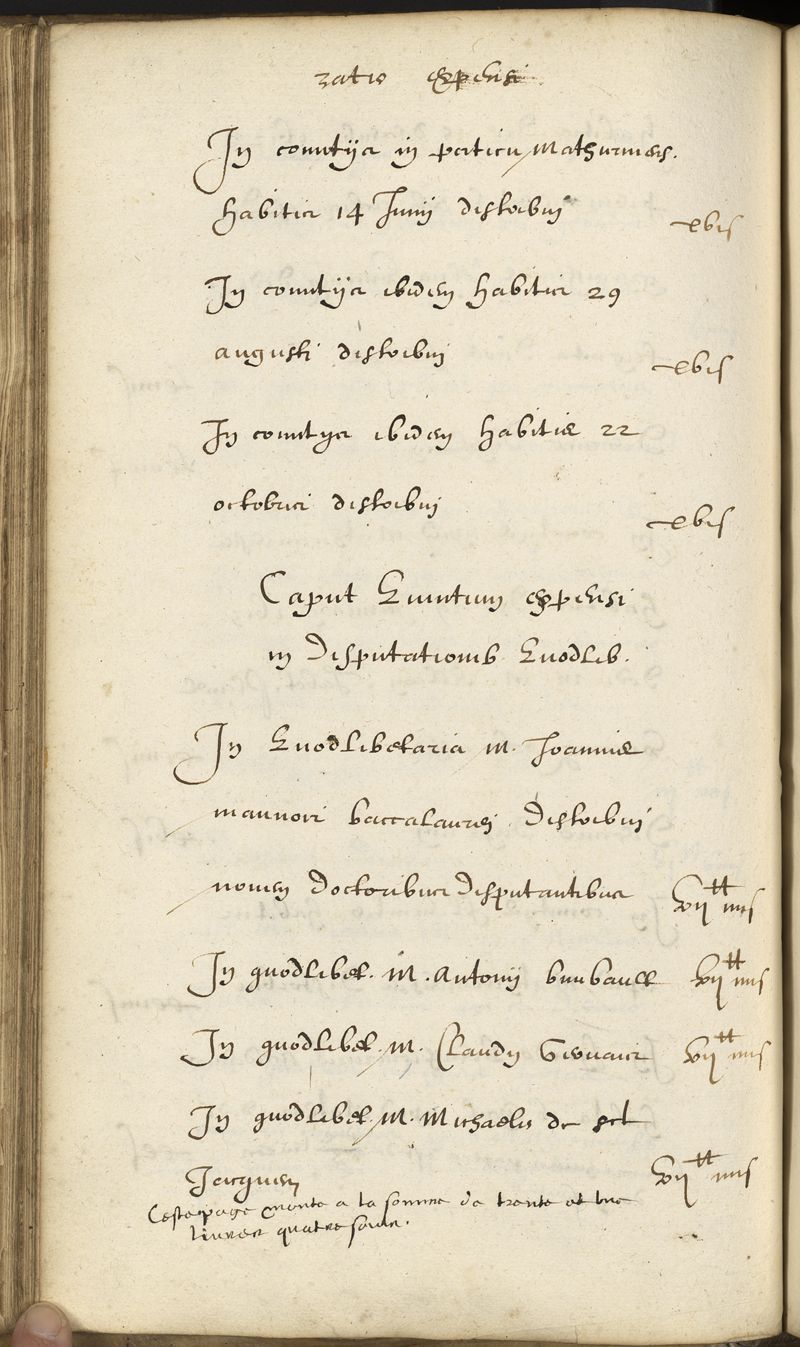 ratio expensi
In comitijs in porticu Mathurinens.
habitis 14 Junij distribui xvis
In comitijs ibidem habitis 29
augusti distribui xvis
In comitijs ibidem habitis 22
octobris distribui xvis
Caput Quintum expensi
in Disputationib Quodlib.
In Quodlibetaria M. Joannis
mannori baccalaurei Distribui
novem Doctoribus Disputantibus vij tt iiijs
In quodlibet. M. Antonij vij tt iiijs
In quodlibet. M. Claudij vij tt iiijs
In quodlibet. M. Michaelis de
Jacques vij tt iiijs
Ceste page monte a la somme de trente et une
livres quatre soulz.